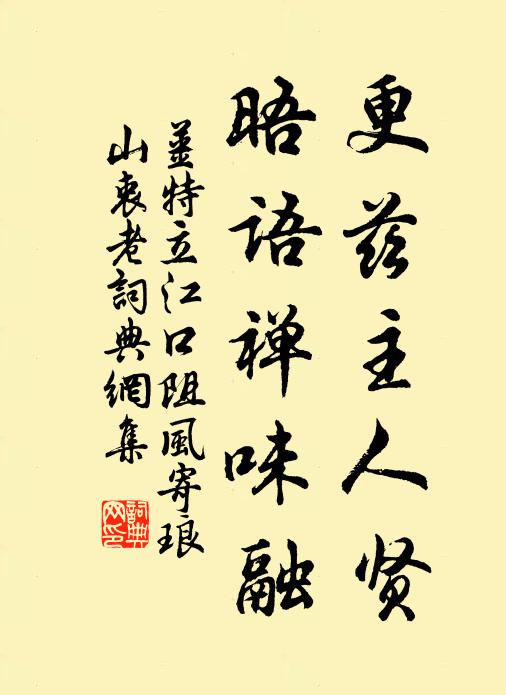 更兹主人贤
晤語禅味融
薑特立江口阻風寄琅
山衷老詞典網集
詞典
网印